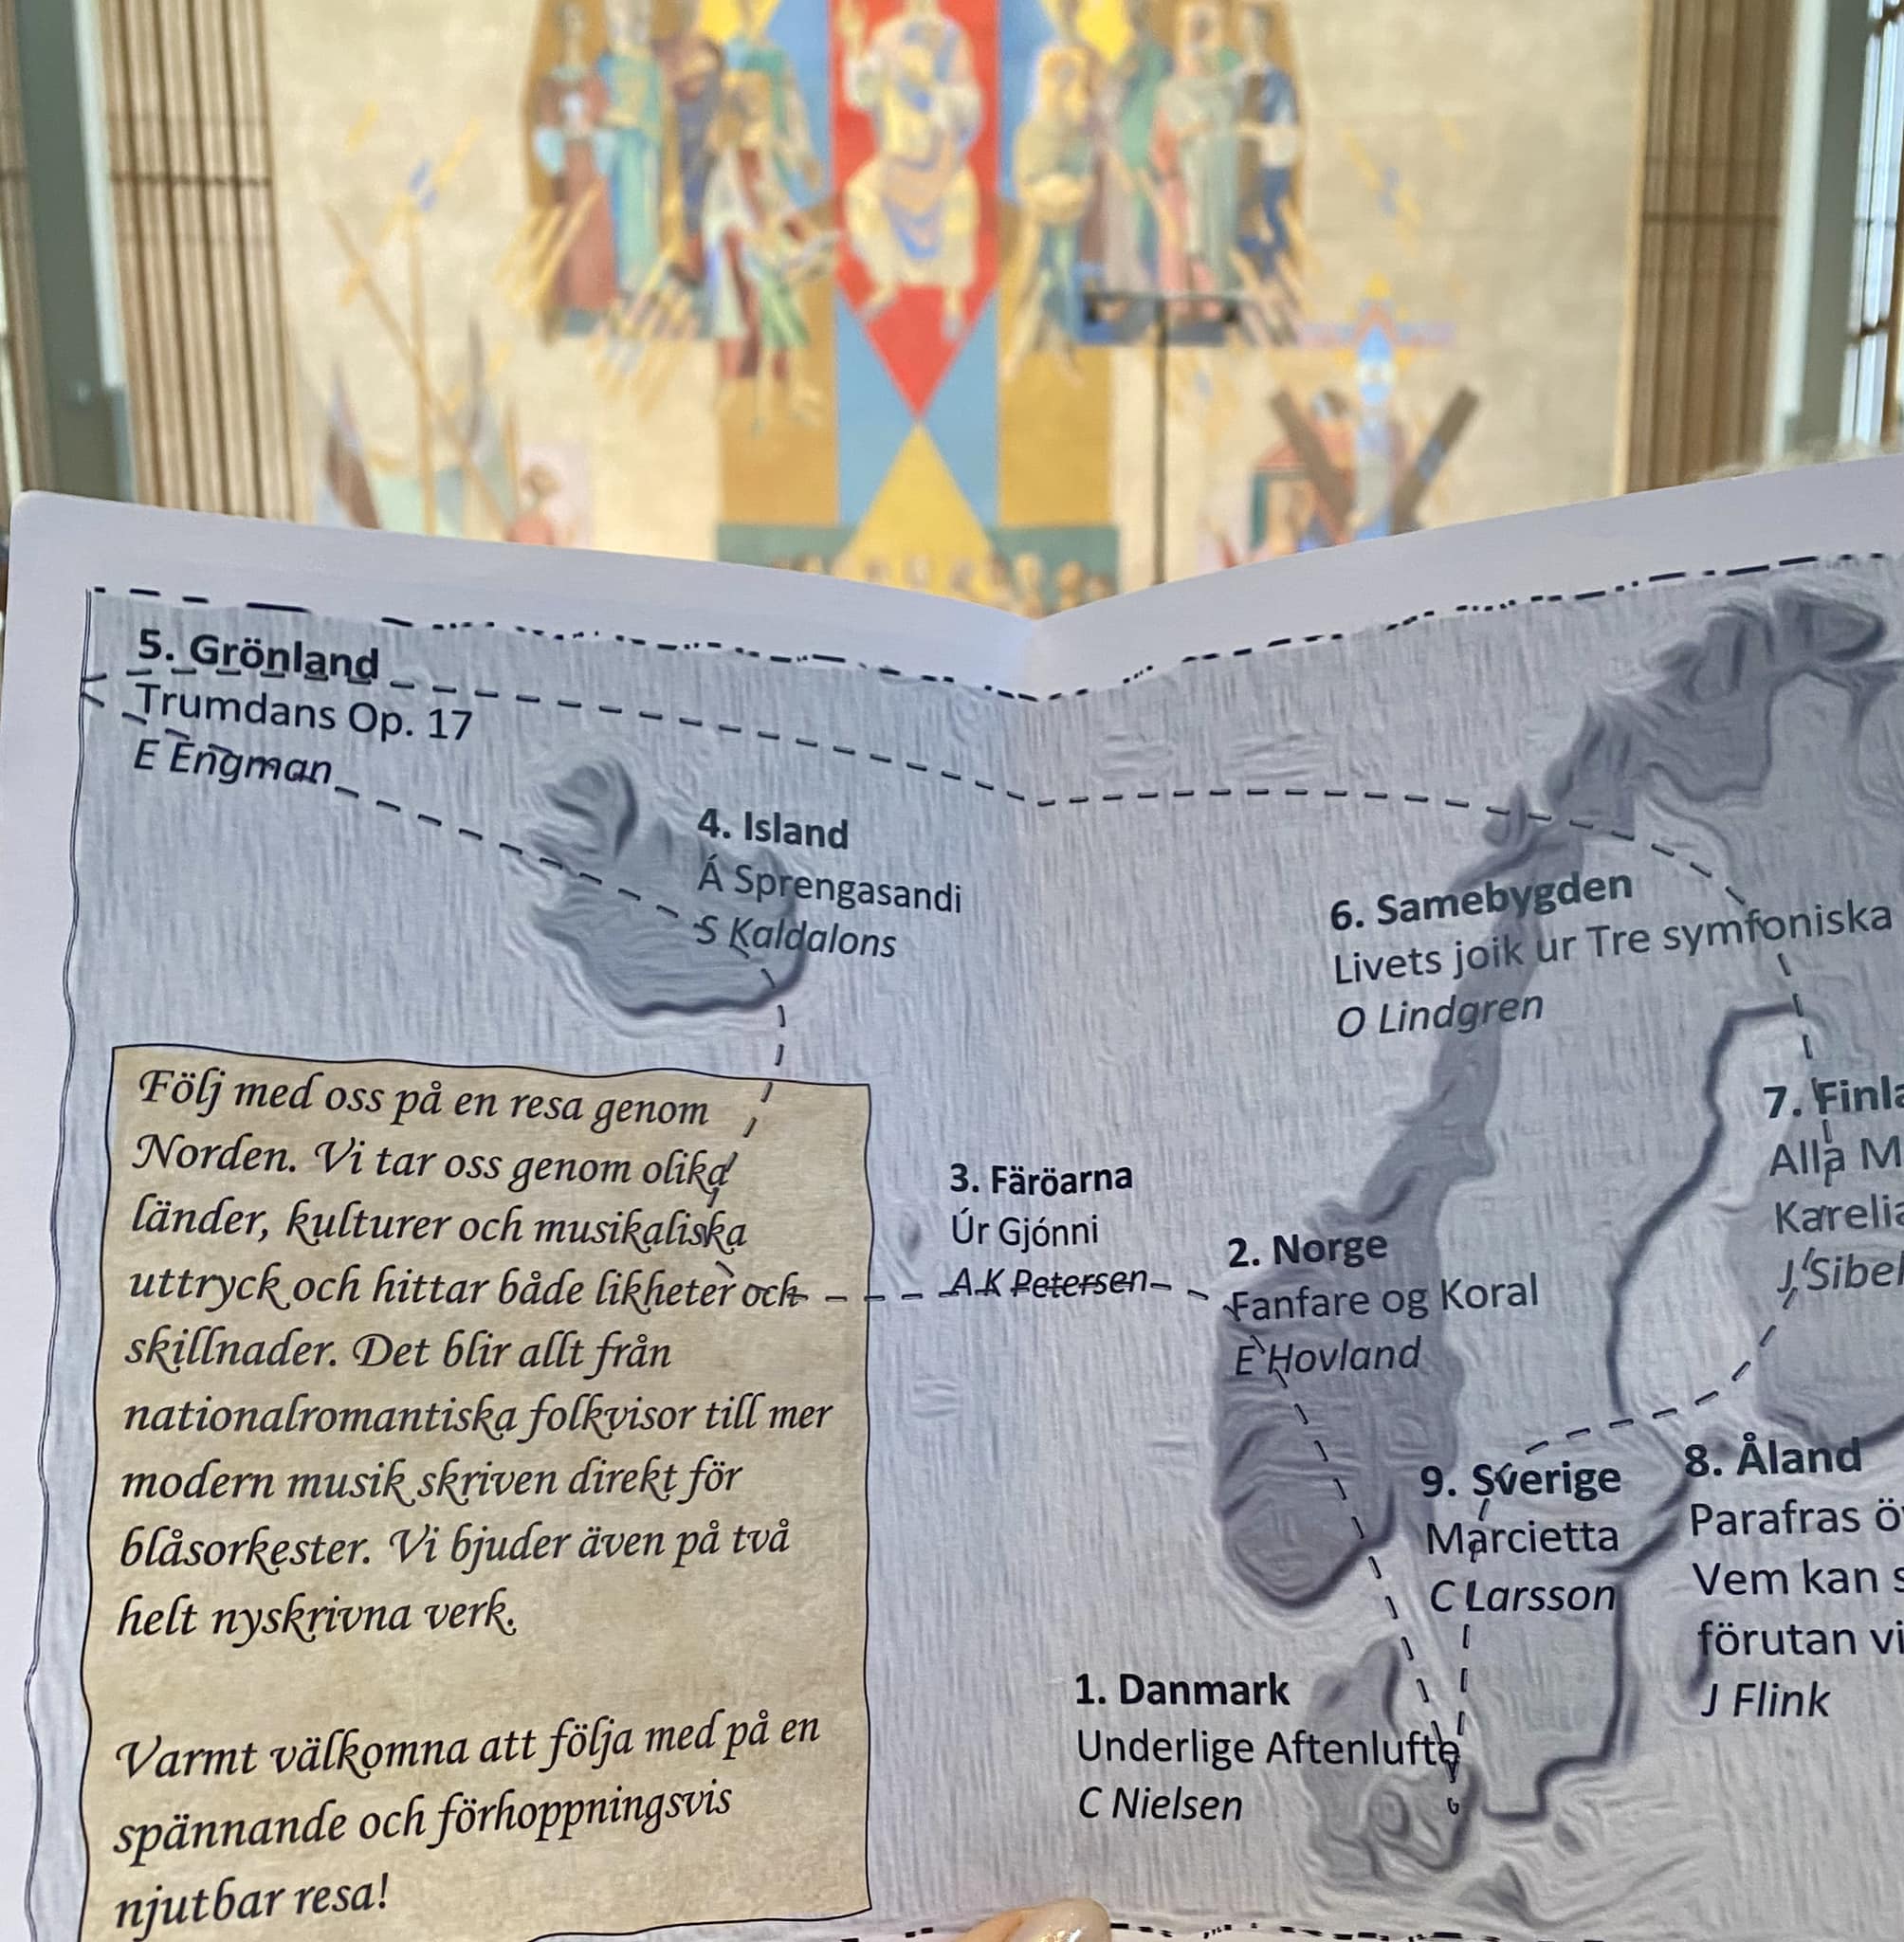 5. Grönland
Trumdans Op. 17
E Engman
4. Island
Á Sprengasandi
S Kaldalons
Följ med oss på en resa genom
Norden. Vi tar oss genom olika
länder, kulturer och musikaliska
uttryck och hittar både likheter och
skillnader. Det blir allt från
nationalromantiska folkvisor till mer
modern musik skriven direkt för
blåsorkester. Vi bjuder även på två
helt nyskrivna verk.
Varmt välkomna att följa med på en
spännande och förhoppningsvis
njutbar resa!
3. Färöarna
Úr Gjónni
A K Petersen
2. Norge
Fanfare og Koral
E Hovland
1. Danmark
Underlige Aftenlufte
C Nielsen
6. Samebygden
Livets joik ur Tre symfoniska
O Lindgren
7.
Alla
J
9. Sverige
Marcietta
C Larsson
8. Åland
Parafras
Vem kan
förutan
J Flink